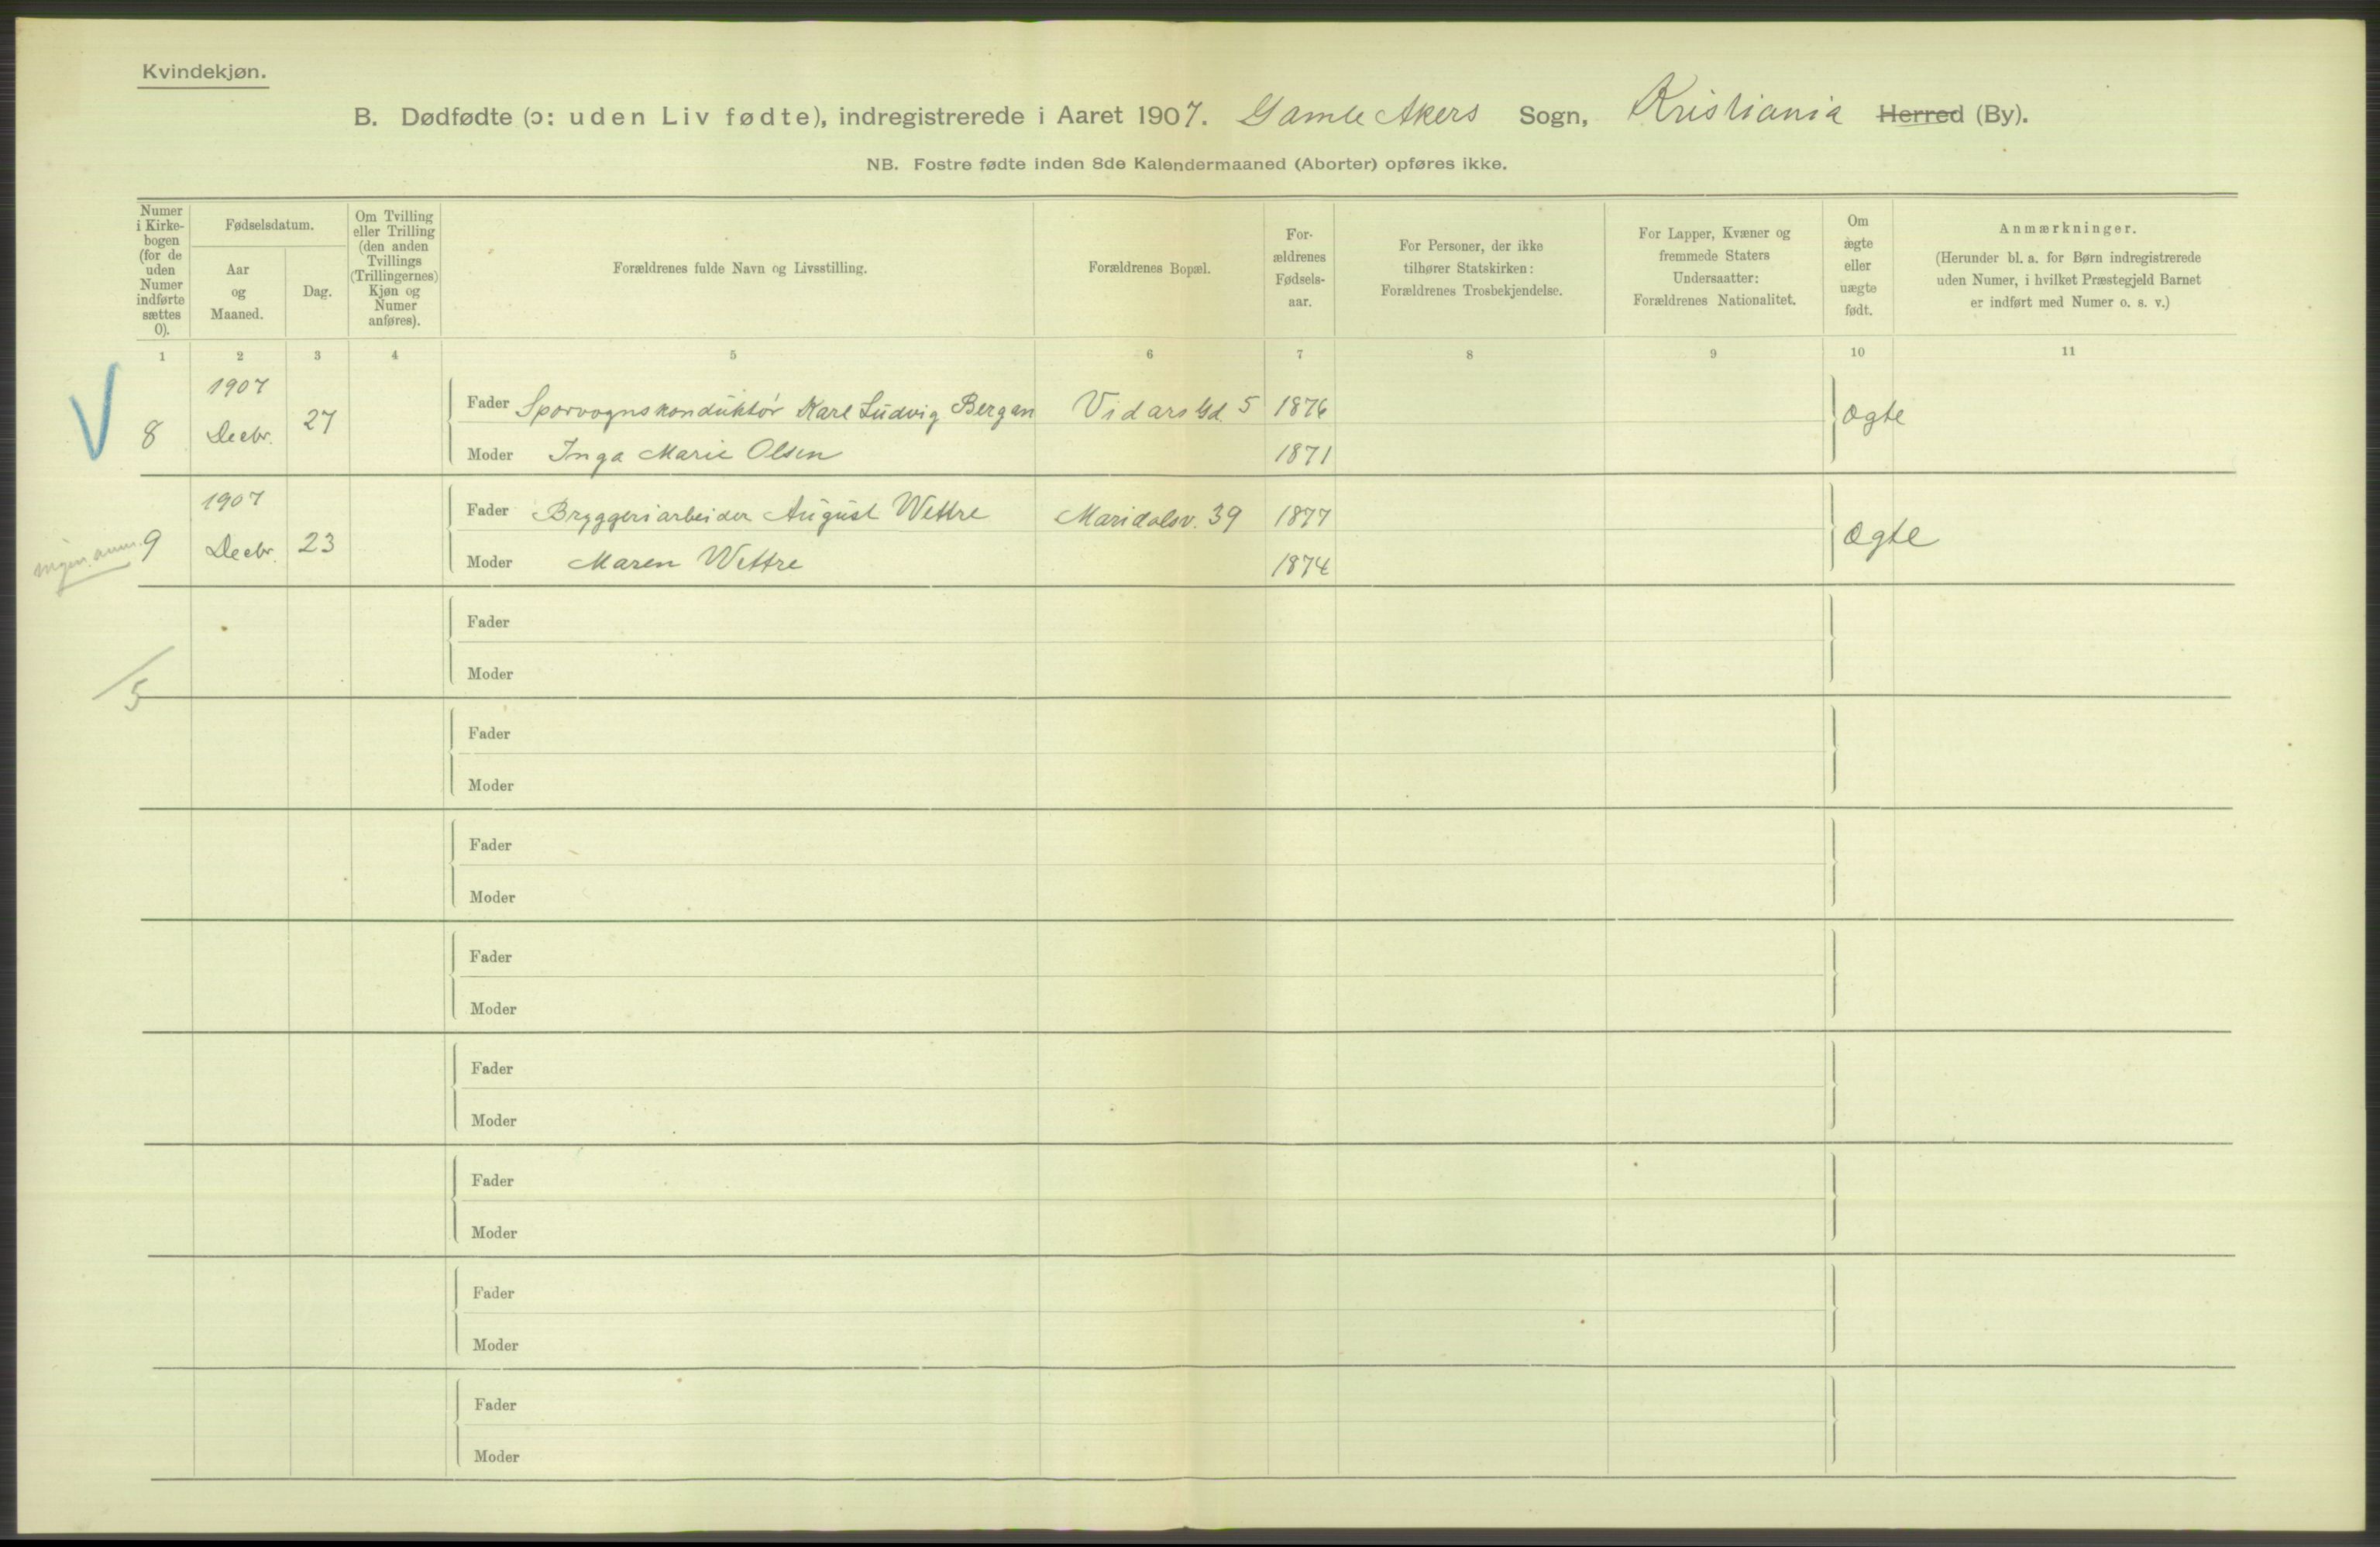 Kvindekjøn.
B. Dødfødte (ɔ: uden Liv fødte), indregistrerede i Aaret 1907. Gamle Akers Sogn, Kristiania Herred (By).
NB. Fostre fødte inden 8de Kalendermaaned (Aborter) opføres ikke.
Numer i Kirkebogen (for de uden Numer indførte sættes 0).
Fødselsdatum.
Aar og Maaned.
Dag.
Om Tvilling eller Trilling (den anden Tvillings (Trillingernes) Kjøn og Numer anføres).
Forældrenes fulde Navn og Livsstilling.
Forældrenes Bopæl.
For-
ældrenes
Fødsels-
aar.
For Personer, der ikke
tilhører Statskirken:
Forældrenes Trosbekjendelse.
For Lapper, Kvæner og
fremmede Staters
Undersaatter:
Forældrenes Nationalitet.
Om
ægte
eller
uægte
født.
Anmærkninger.
(Herunder bl. a. for Børn indregistrerede
uden Numer, i hvilket Præstegjeld Barnet
er indført med Numer o. s. v.)
1 2 3 4 5 6 7 8 9 10 11
V 8 1907 Decbr. 27 Fader Sporvognskonduktør Karl Ludvig Bergan Vidars Gd. 5 1876 Ægte
Moder Inga Marie Olsen 1871
9 1907 Decbr. 23 Fader Bryggeriarbeider August Wettre Maridalsv. 39 1877 Ægte
Moder Maren Wettre 1874
Fader
Moder
5
Fader
Moder
Fader
Moder
Fader
Moder
Fader
Moder
Fader
Moder
Fader
Moder
Fader
Moder